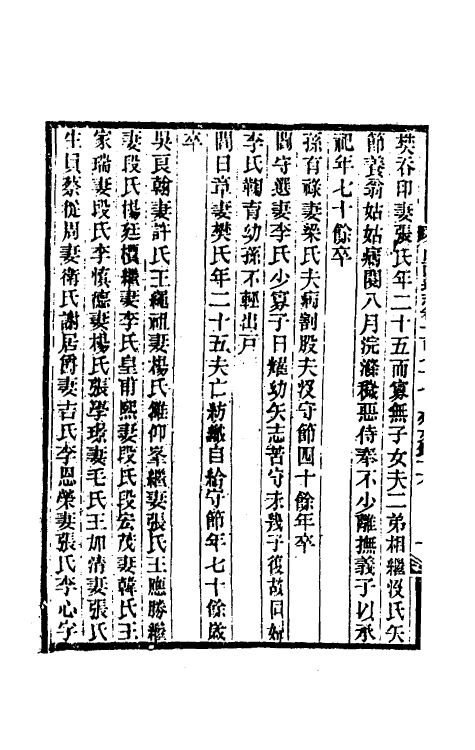 樊吞印妻張氏年二十五而寡無子女夫二弟相繼歿氏矢
節養翁姑姑病閱八月浣滌穢惡侍奉不少離撫義子以承
祀年七十餘卒
孫有祿妻梁氏夫病割股夫歿守節四十餘年卒
閻守選妻李氏少寡子日耀幼矢志苦守未幾子復故同婦
李氏鞠育幼孫不輕出戶
閻日章妻樊氏年二十五夫亡紡織自給守節年七十餘歲
卒
吳良翰妻許氏王繩祖妻楊氏 仰峯繼妻張氏王應勝繼
妻段氏楊廷櫃繼妻李氏皇甫熙妻段氏段宏茂妻韓氏王
家瑞妻段氏李慎德妻楊氏張學 妻毛氏王如清妻張氏
生員蔡從周妻衛氏謝居爵妻吉氏李恩榮妻張氏李心字